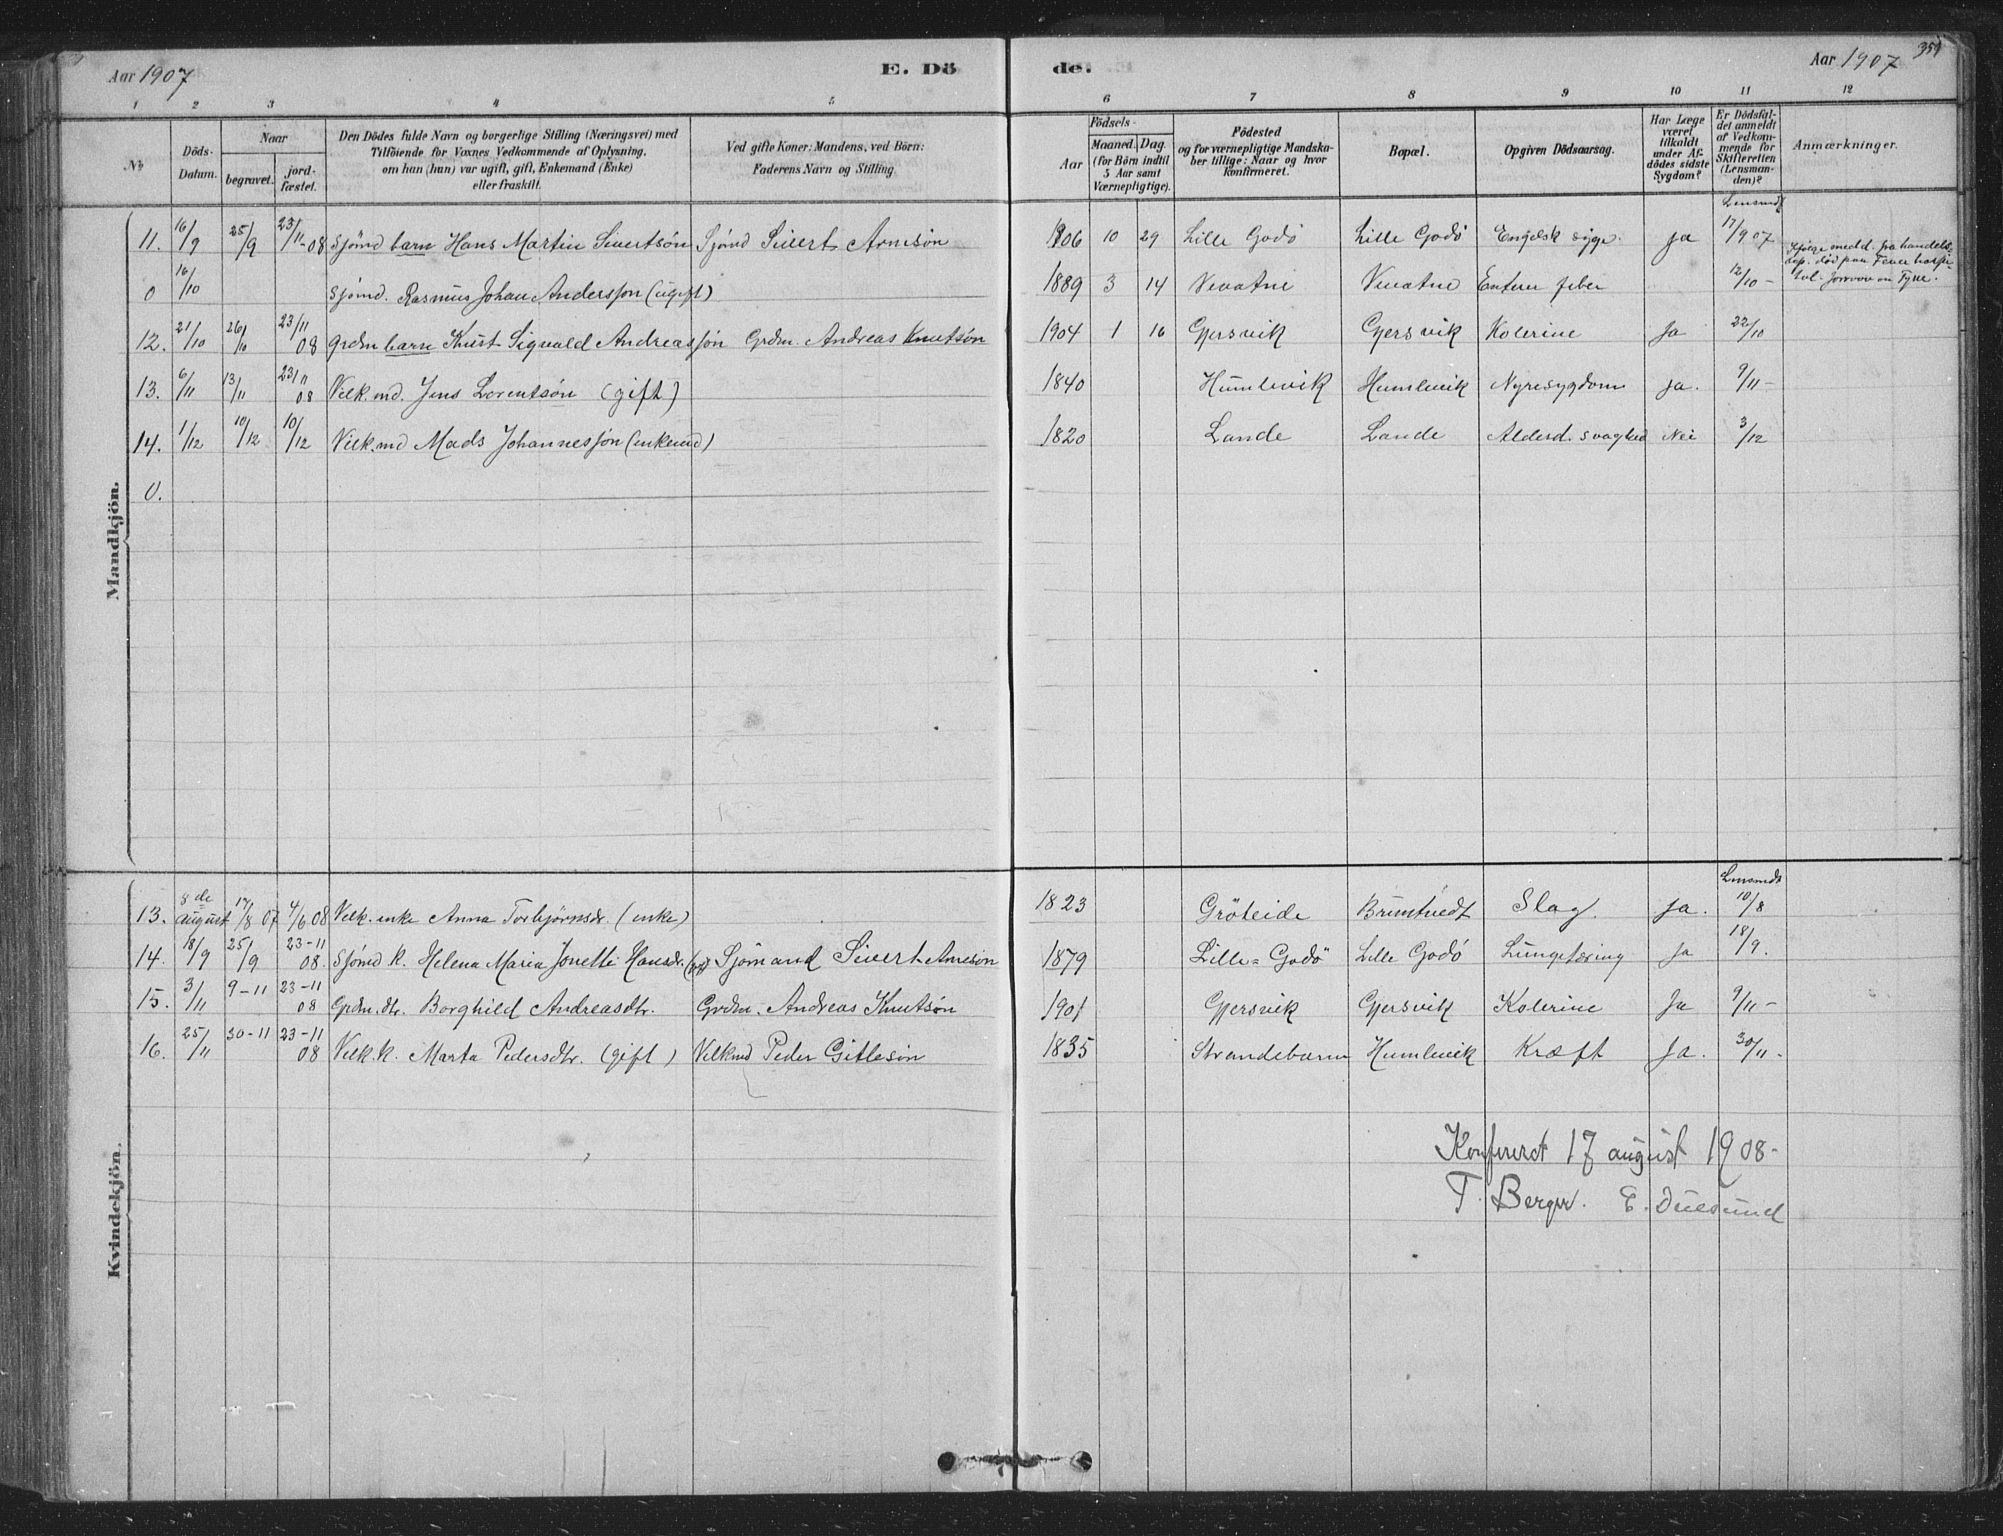 Aar 1907 E. Dö de. Aar 1907
1 2 3 4 5 6 7 8 9 10 11 12
No
Döds-Datum.
Naar
begravet.
jord-fæstet.
Den Dödes fulde Navn og borgerlige Stilling (Næringsvei) med
Tilföiende for Voxnes Vedkommende af Oplysning,
om han (hun) var ugift, gift, Enkemand (Enke)
eller fraskilt.
Ved gifte Koner: Mandens, ved Börn:
Faderens Navn og Stilling.
Födsels-
Aar
Maaned. Dag.
(for Börn indtil
5 Aar samt
Værnepligtige).
Födested
og for værnepligtige Mandska-
ber tillige: Naar og hvor
konfirmeret.
Bopæl.
Opgiven Dödsaarsag.
Har Læge
været
tilkaldt
under Af-
dödes sidste
Sygdom?
Er Dödsfal-
det anmeldt
af Vedkom-
mende for
Skifteretten
(Lensman-
den)?
Anmærkninger.
Mandkjön.
11. 16/9 25/9 23/11-08 Sjömd barn Hans Martin Sivertsön Sjömd Sivert Arnesön 1906 10 29 Lille Godö Lille Godö Engelsk syge. ja 17/9 07
0 16/10 Sjömd. Rasmus Johan Andersson (ugift) 1889 3 14 Vevatne Vevatne feber 12/10 -
12. 21/10 26/10 23/11 08 Grdm barn Knut Sigvald Andreassön Grdm. Andreas Knutsön 1904 1 16 Gjersvik Gjersvik Kolerine Ja 22/10
13. 6/11 13/11 23/11 08 Velk.md. Jens Lorentsön (gift) 1840 Humlevik Humlevik Nyresygdom ja. 9/11 -
14. 1/12 10/12 10/12 Velk.md Mads Johannessön (enkemd) 1820 Lande Lande Alderd. svaghed Nei 3/12
0.
Kvindekjön.
13. 8de August 17/8 07 4/6 08 Velk. enke Anna Torbjörnsdr. (enke) 1823 Gröteide Brimtvedt Slag. ja. 10/8
14. 18/9 25/9 23-11 08. Sjömd k. Helena Maria Jonette Hansdr. (gift) Sjömand Sivert Arnesön 1879 Lille-Godö Lille Godö Lungetæring Ja 18/9.
15. 3/11 9-11 23-11 08 Grdm.dtr. Borghild Andreasdtr. Grdm. Andreas Knutsön 1901 Gjersvik Gjersvik Kolerine Ja 9/11 -
16. 25/11 30-11 23-11 08 Velk.k. Marta Pedersdtr. (gift) Velkmd Peder Gitlesön 1835 Strandebarm Humlevik Kræft Ja. 30/11 -
Konfereret 17 august 1908-
T. Berger. E. Duesund